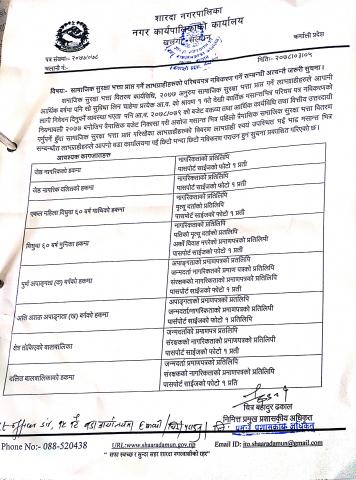 शारदा नगरपालिका
नगर कार्यपालिकाको कार्यालय
कर्णाली प्रदेश
पत्र संख्याः- २०७७/७८
चलानी नं.:-
मितिः- २०७८।०३।०५
विषयः- सामाजिक सुरक्षा भत्ता प्राप्त गर्ने लाभग्राहीहरुको परिचयपत्र नविकरण गर्ने सम्बन्धी अत्यन्तै जरुरी सूचना ।
सामाजिक सुरक्षा भत्ता वितरण कार्यविधि, २०७७ अनुरुप सामाजिक सुरक्षा भत्ता प्राप्त गर्ने लाभग्राहीहरुले आगामी
आर्थिक बर्षमा पनि सो सुविधा लिन चाहेमा प्रत्येक आ.व. को श्रावण १ गते देखी कार्तिक मसान्तभित्र परिचय पत्र नविकरणको
लागी निवेदन दिनुपर्ने व्यवस्था भएता पनि आ.व. २०७८/०७९ को बजेट
सम्बन्धीत लाभग्राहीहरुले आफ्नो वडा कार्यालयमा गई छिटो भन्दा छिटो नविकरण गराउन हुन सुचना प्रकाशित गरिएको छ ।
आवश्यक कागजातहरु
जेष्ठ नागरिकको हकमा
नागरिकताको प्रतिलिपि
पासपोर्ट साईजको फोटो १ प्रती
जेष्ठ नागरिक दलितको हकमा
नागरिकताको प्रतिलिपि
पासपोर्ट साईजको फोटो १ प्रती
एकल महिला विधुवा ६० बर्ष माथिको हकमा
नागरिकताको प्रतिलिपि
मृत्यू दर्ताको प्रतिलिपि
पासपोर्ट साईजको फोटो १ प्रती
विधुवा ६० बर्ष मुनिका हकमा
नागरिकताको प्रतिलिपि
पतिको मृत्यू दर्ताको प्रतिलिपि
अर्को विवाह नगरेको प्रमाणपत्रको प्रतिलिपी
पासपोर्ट साईजको फोटो १ प्रती
पुर्ण अपाङ्गता (क) बर्गको हकमा
अपाङ्गताको प्रमाणपत्रको प्रतिलिपि
जन्मदर्ता/नागरिकताको प्रमाणपत्रको प्रतिलिपि
संरक्षकको नागरिकताको प्रमाणपत्रको प्रतिलिपि
पासपोर्ट साईजको फोटो १ प्रती
अति अशक्त अपाङ्गता (ख) बर्गको हकमा
अपाङ्गताको प्रमाणपत्रको प्रतिलिपि
जन्मदर्ता/नागरिकताको प्रमाणपत्रको प्रतिलिपि
पासपोर्ट साईजको फोटो १ प्रतिलिपि
क्षेत्र तोकिएको बालबालिका
जन्मदर्ताको प्रमाणपत्र प्रतलिपि
संरक्षकको नागरिकताको प्रमाणपत्रको प्रतिलिपि
पासपोर्ट साईजको फोटो १ प्रती
दलित बालबालिकाको हकमा
जन्मदर्ता प्रमाणपत्रको प्रतलिपि
संरक्षकको नागरिकताको प्रमाणपत्रको प्रतिलिपि
पासपोर्ट साईजको फोटो १ प्रती
चित्र बहादुर ढकाल
निमित्त प्रमुख प्रशासकीय अधिकृत
Phone No:- 088-520438
URL:www.shaaradamun.gov.np
Email ID: ito.shaaradamun@gmail.com
" सफा स्वच्छ र सुन्दर सहर शारदा नगरबासीको रहर"